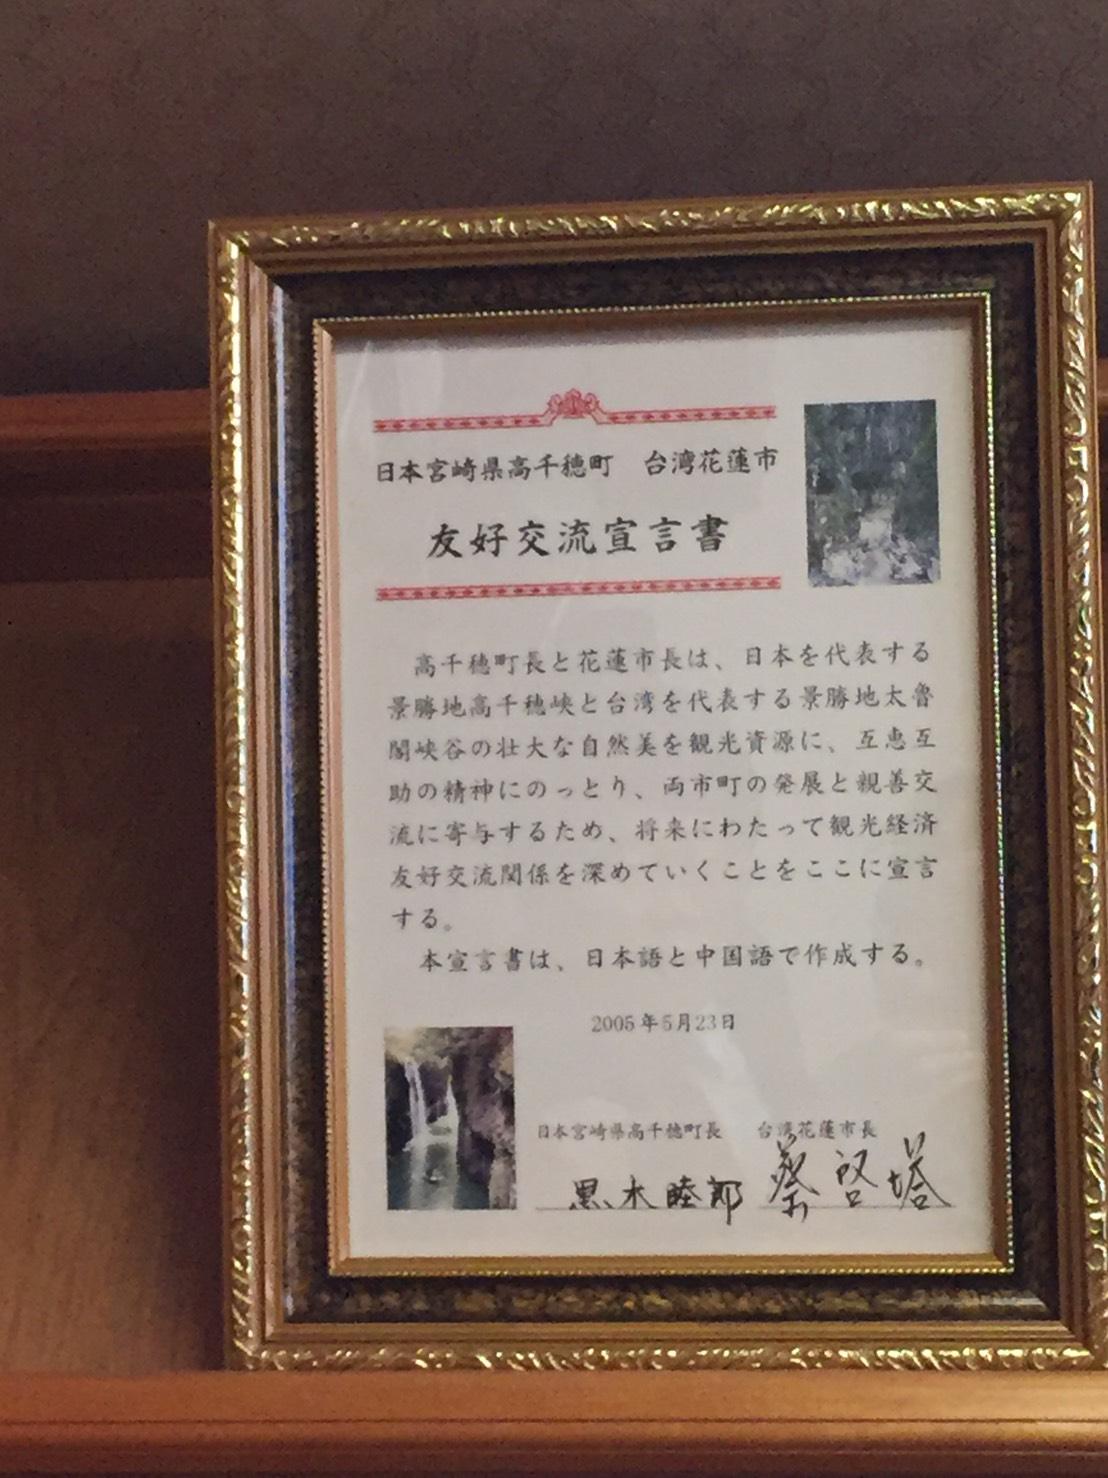 日本宮崎県高千穂町　台湾花蓮市
友好交流宣言書
高千穂町長と花蓮市長は、日本を代表する
景勝地高千穂峡と台湾を代表する景勝地太魯
閣峡谷の壮大な自然美を観光資源に、互恵互
助の精神にのっとり、両市町の発展と親善交
流に寄与するため、将来にわたって観光経済
友好交流関係を深めていくことをここに宣言
する。
本宣言書は、日本語と中国語で作成する。
2005年5月23日
日本宮崎県高千穂町長　台湾花蓮市長
黒木睦郎　蔡啓塔